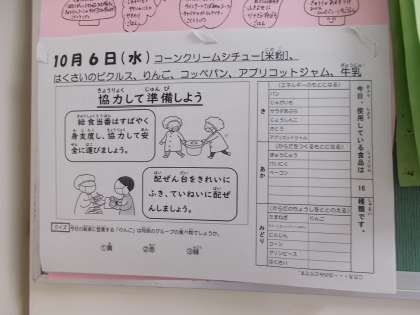 10月6日(水) コーンクリームシチュー[米粉]、
はくさいのピクルス、りんご、コッペパン、アプリコットジャム、牛乳
きょうりょく じゅんび
協力して準備しよう
給食当番はすばやく
身支度し、協力して安
全に運びましょう。
配ぜん台をきれいに
ふき、ていねいに配ぜ
んしましょう。
クイズ 今日の給食に登場する「りんご」は何色のグループの食べ物でしょうか。
①黄 ②赤 ③緑
今日、使用している食品は
16
種類です。
き
(エネルギーのもとになる)
パン
じゃがいも
サラダあぶら
さとう
アプリコットジャム
あか
(からだをつくるもとになる)
ぎゅうにゅう
ベーコン
みどり
(からだのちょうしをととのえる)
たまねぎ りんご
にんじん
コーン
グリンピース
はくさい